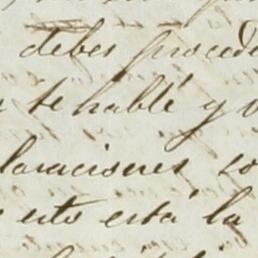 debes procede
te hablé y v
laraciones co
esto está la